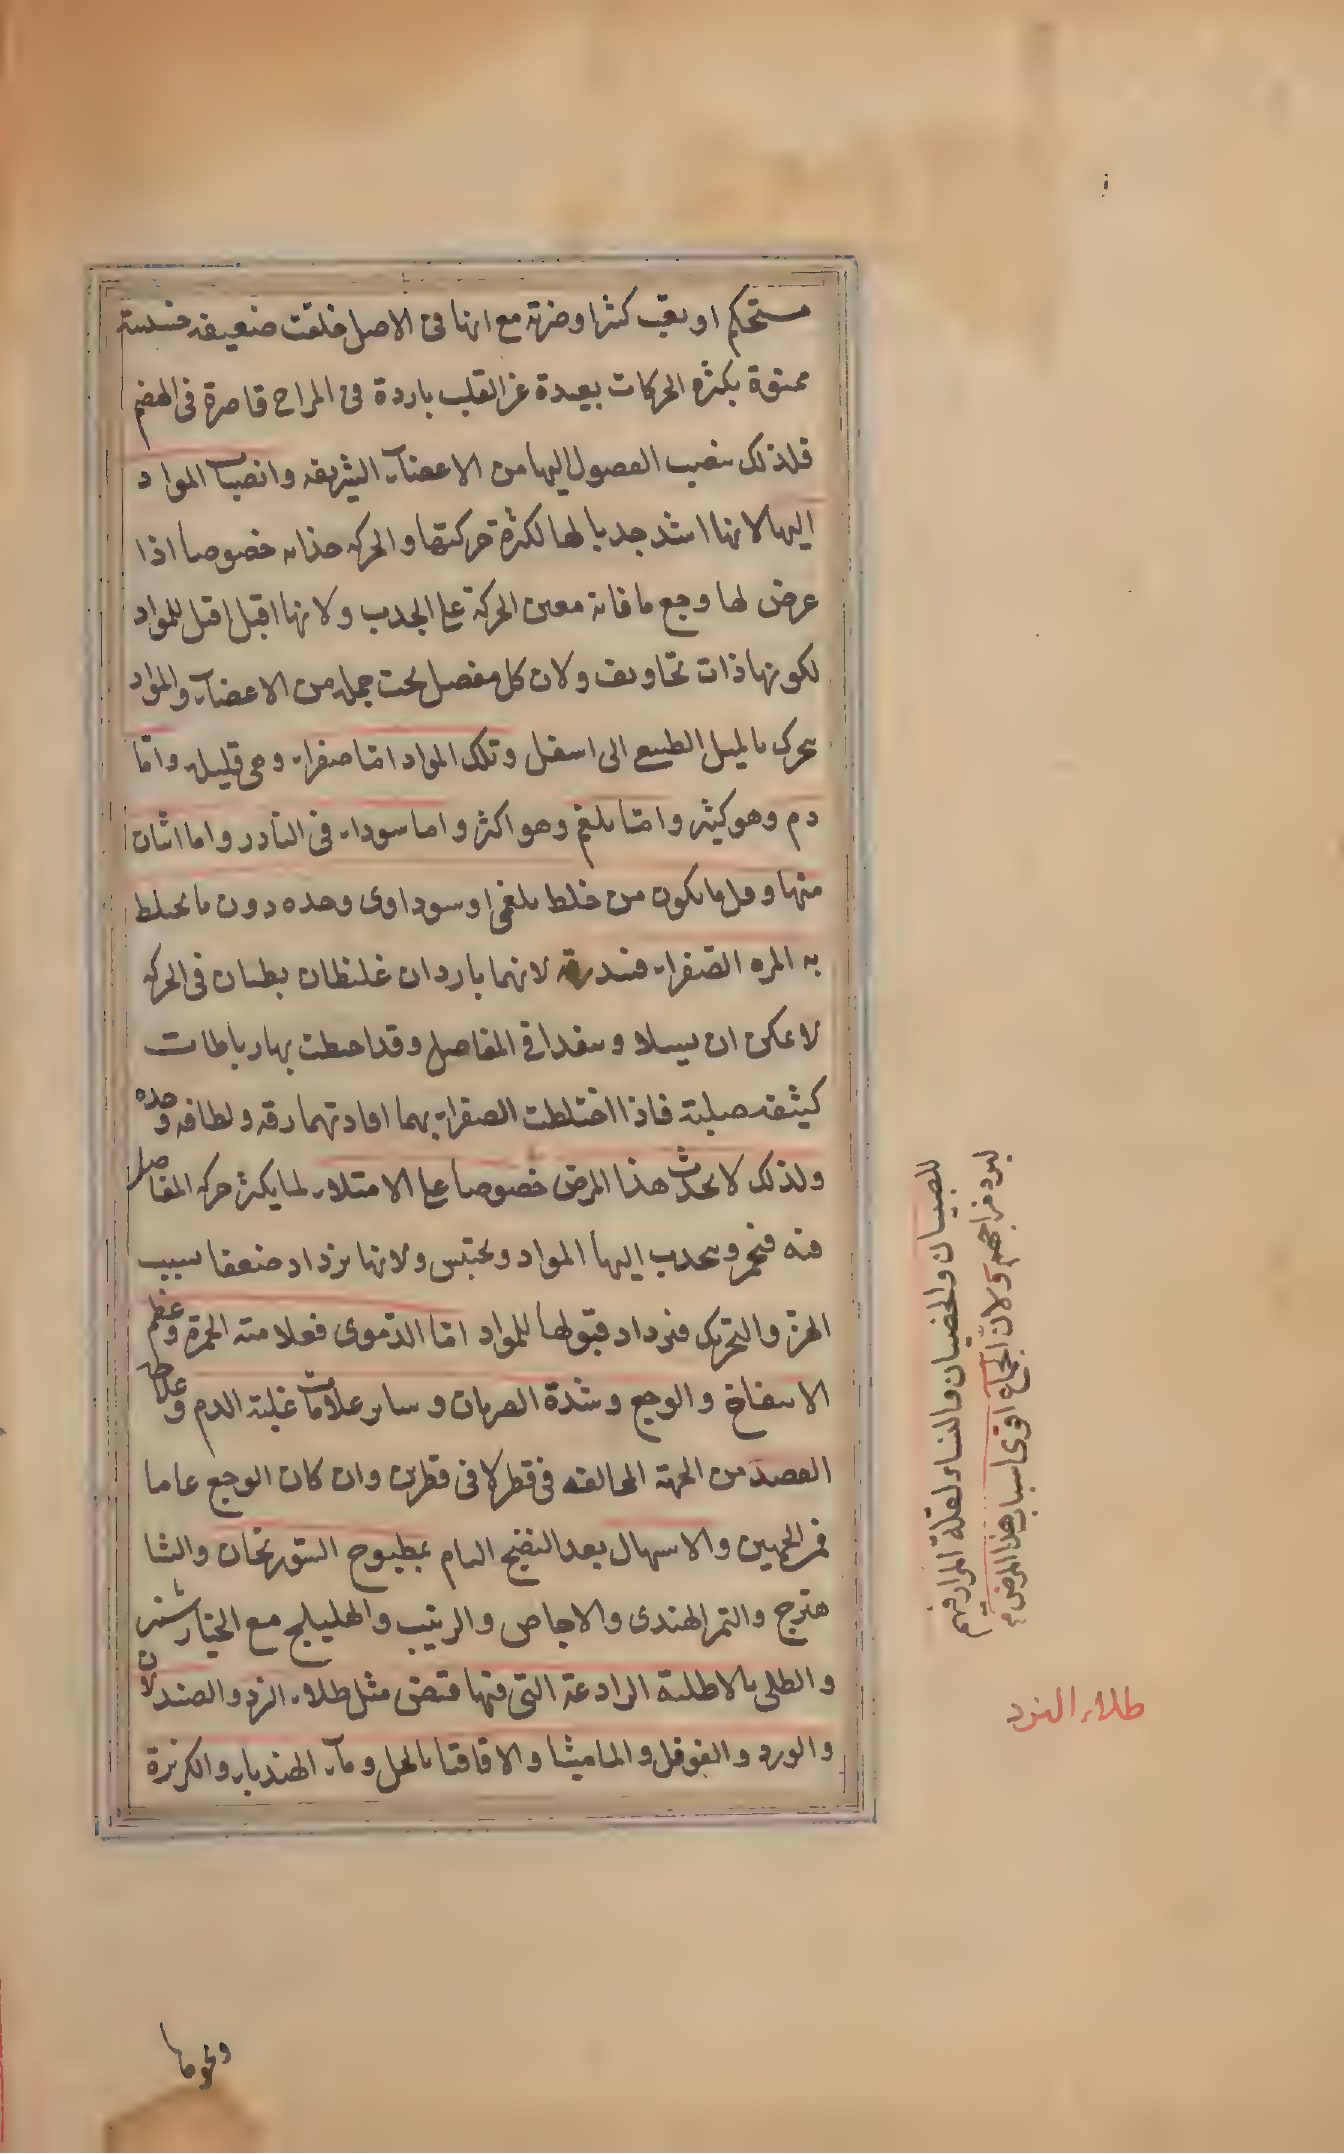 مستحكم او تعب كثيرا وضربة مع انها فى الاصل خلقت ضعيفه خسيسة
ممنوة بكثره الحركات بعيدة عن القلب باردة فى المزاج قاصرة فى الهضم
فلذلك ينصب الفضول اليها من الاعضاء الشريفه وانصباب المواد
اليها لانها اشد جذبا لها لكثرة حركتها والحركه جذابه خصوصا اذا
عرض لها وجع ما فانه معين الحركة على الجذب ولانها اقبل اقبل للمواد
لكونها ذات تجاويف ولان كل مفصل تحت جمله من الاعضاء والمواد
يتحرك بالميل الطبيعى الى اسفل وتلك المواد اما صفراء وهى قليله واما
دم وهو كثير واما بلغم وهو اكثر واما سوداء فى النادر واما اثنان
منها وقل ما يكون من خلط بلغمى او سوداوى وحده دون ما يخلط
به المره الصفراء فتدرقه لانهما باردان غليظان بطيان فى الحركه
لا يمكن ان يسيلا وينفذا فى المفاصل وقد احيطت بها رباطات
كثيفه صلبة فاذا اختلطت الصفراء بهما افادتهما رقه ولطافه وحده
ولذلك لا يحدث هذا المرض خصوصا على الامتلاء لما يكثر حركه المفاصل
فيه فيحمى وينجذب اليها المواد ويحتبس ولانها يزداد ضعفا بسبب
الهز والتحريك فيزداد قبولها للمواد اما الدموى فعلامته الحمرة وعظم
الانتفاخ والوجع وشدة الضربان وساير علامات غلبة الدم وعلاجه
الفصد من الجهة المخالفه فى قطر لا فى قطرين وان كان الوجع عاما
فمن الجهتين والاسهال بعد النضج التام بمطبوخ السورنجان والشا
هترج والتمر الهندى والاجاص والزبيب والهليلج مع الخيار شنبر
والطلى بالاطلية الرادعة التى فيها قبض مثل طلاء النرد والصندلان
والورد والفوفل والماميثا والاقاقيا بالخل وماء الهندباء والكزبرة
للصبيان والخصيان والنساء لقلة المرار فيهم
لبرد مزاجهم ولان الجماع اقوى اسباب هذا المرض
طلاء النرد
ونحوها